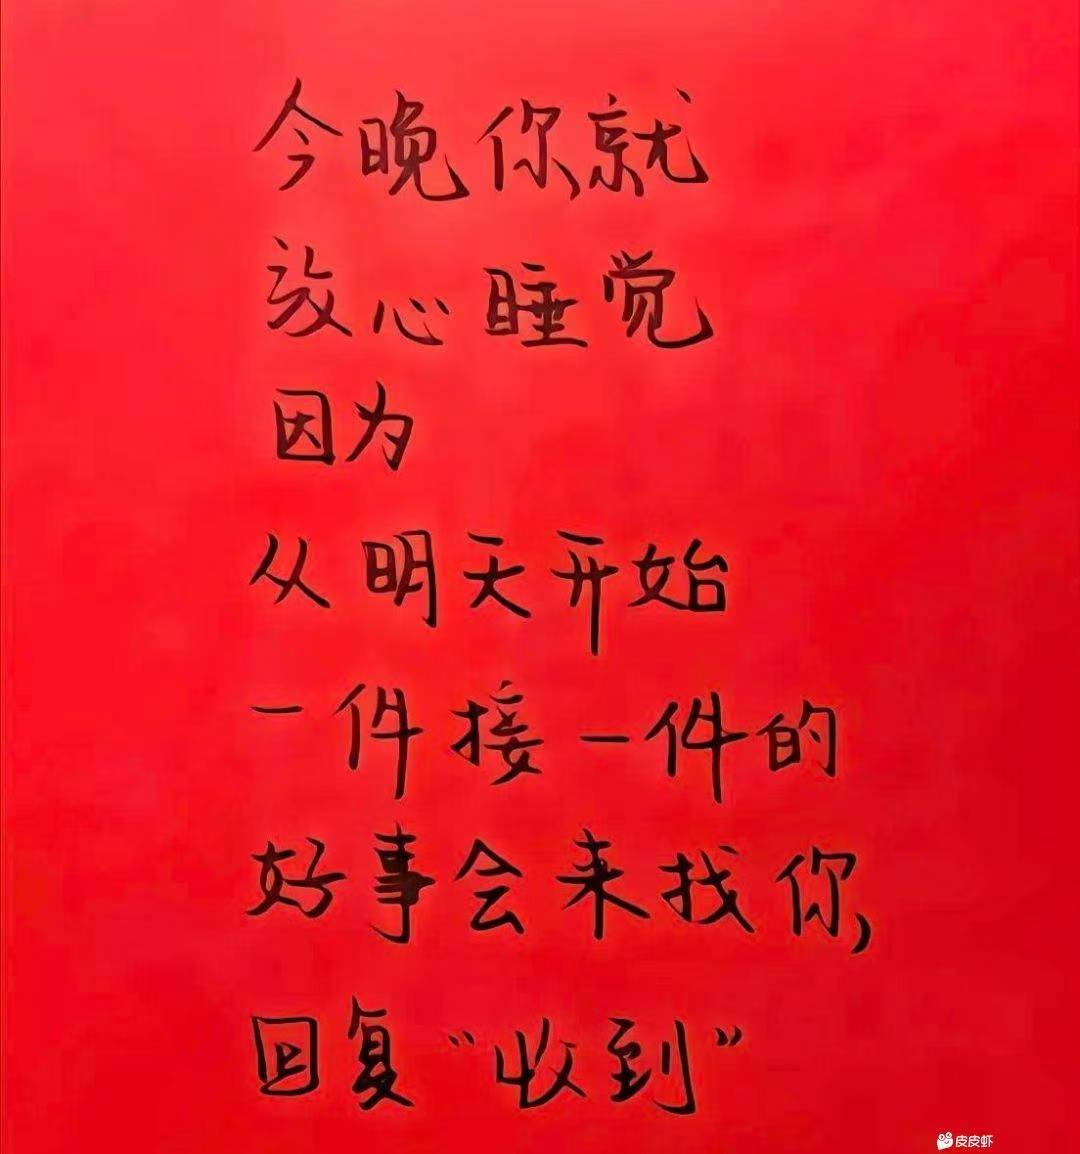 今晚你就
放心睡觉
因为
从明天开始
一件接一件的
好事会来找你,
回复“收到”
皮皮虾